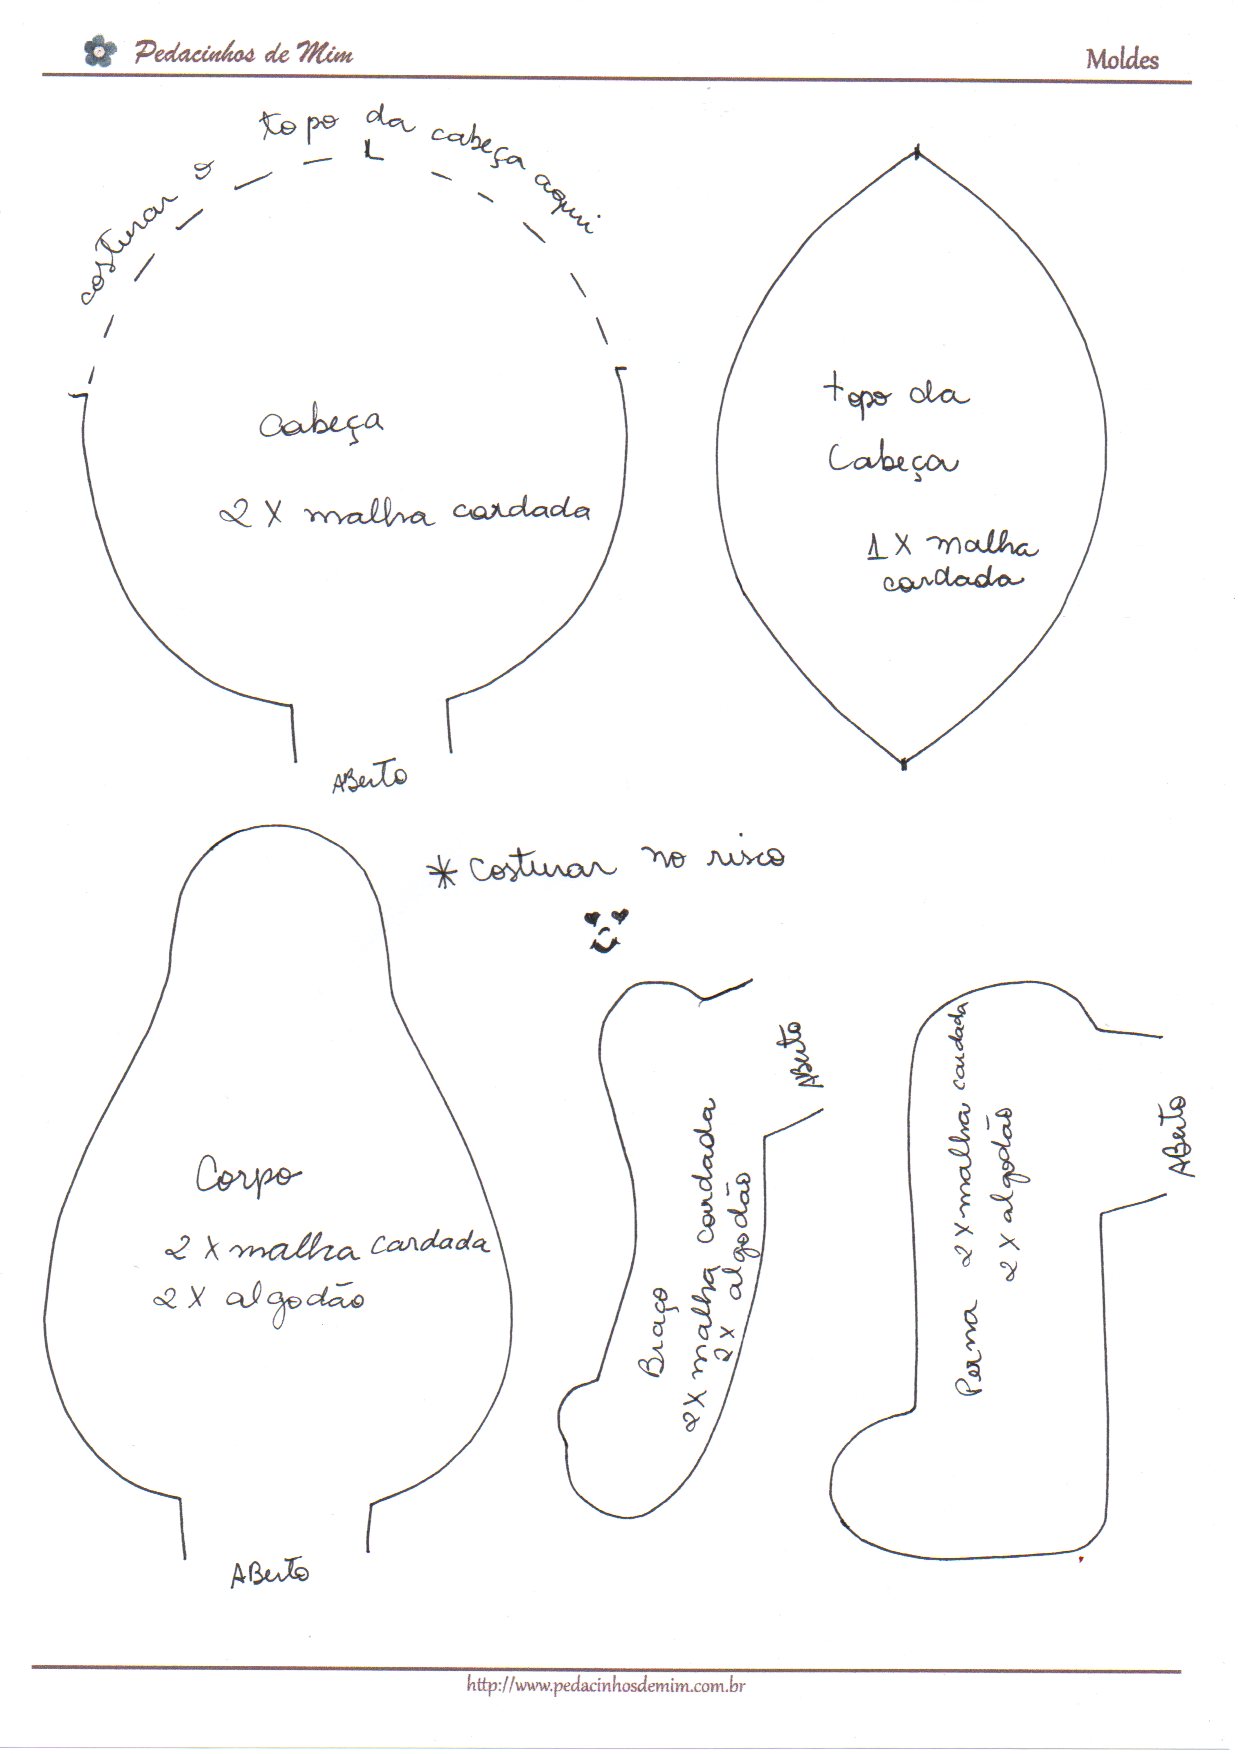 Pedacinhos de Mim
Moldes
costurar o topo da cabeça aqui
Cabeça
2 X malha cardada
Aberto
topo da
Cabeça
1 X malha
cardada
* Costurar no risco
Corpo
2 X malha cardada
2 X algodão
Aberto
Braço
2 X malha cardada
2 X algodão
Aberto
Perna 2 X malha cardada
2 X algodão
Aberto
http://www.pedacinhosdemim.com.br